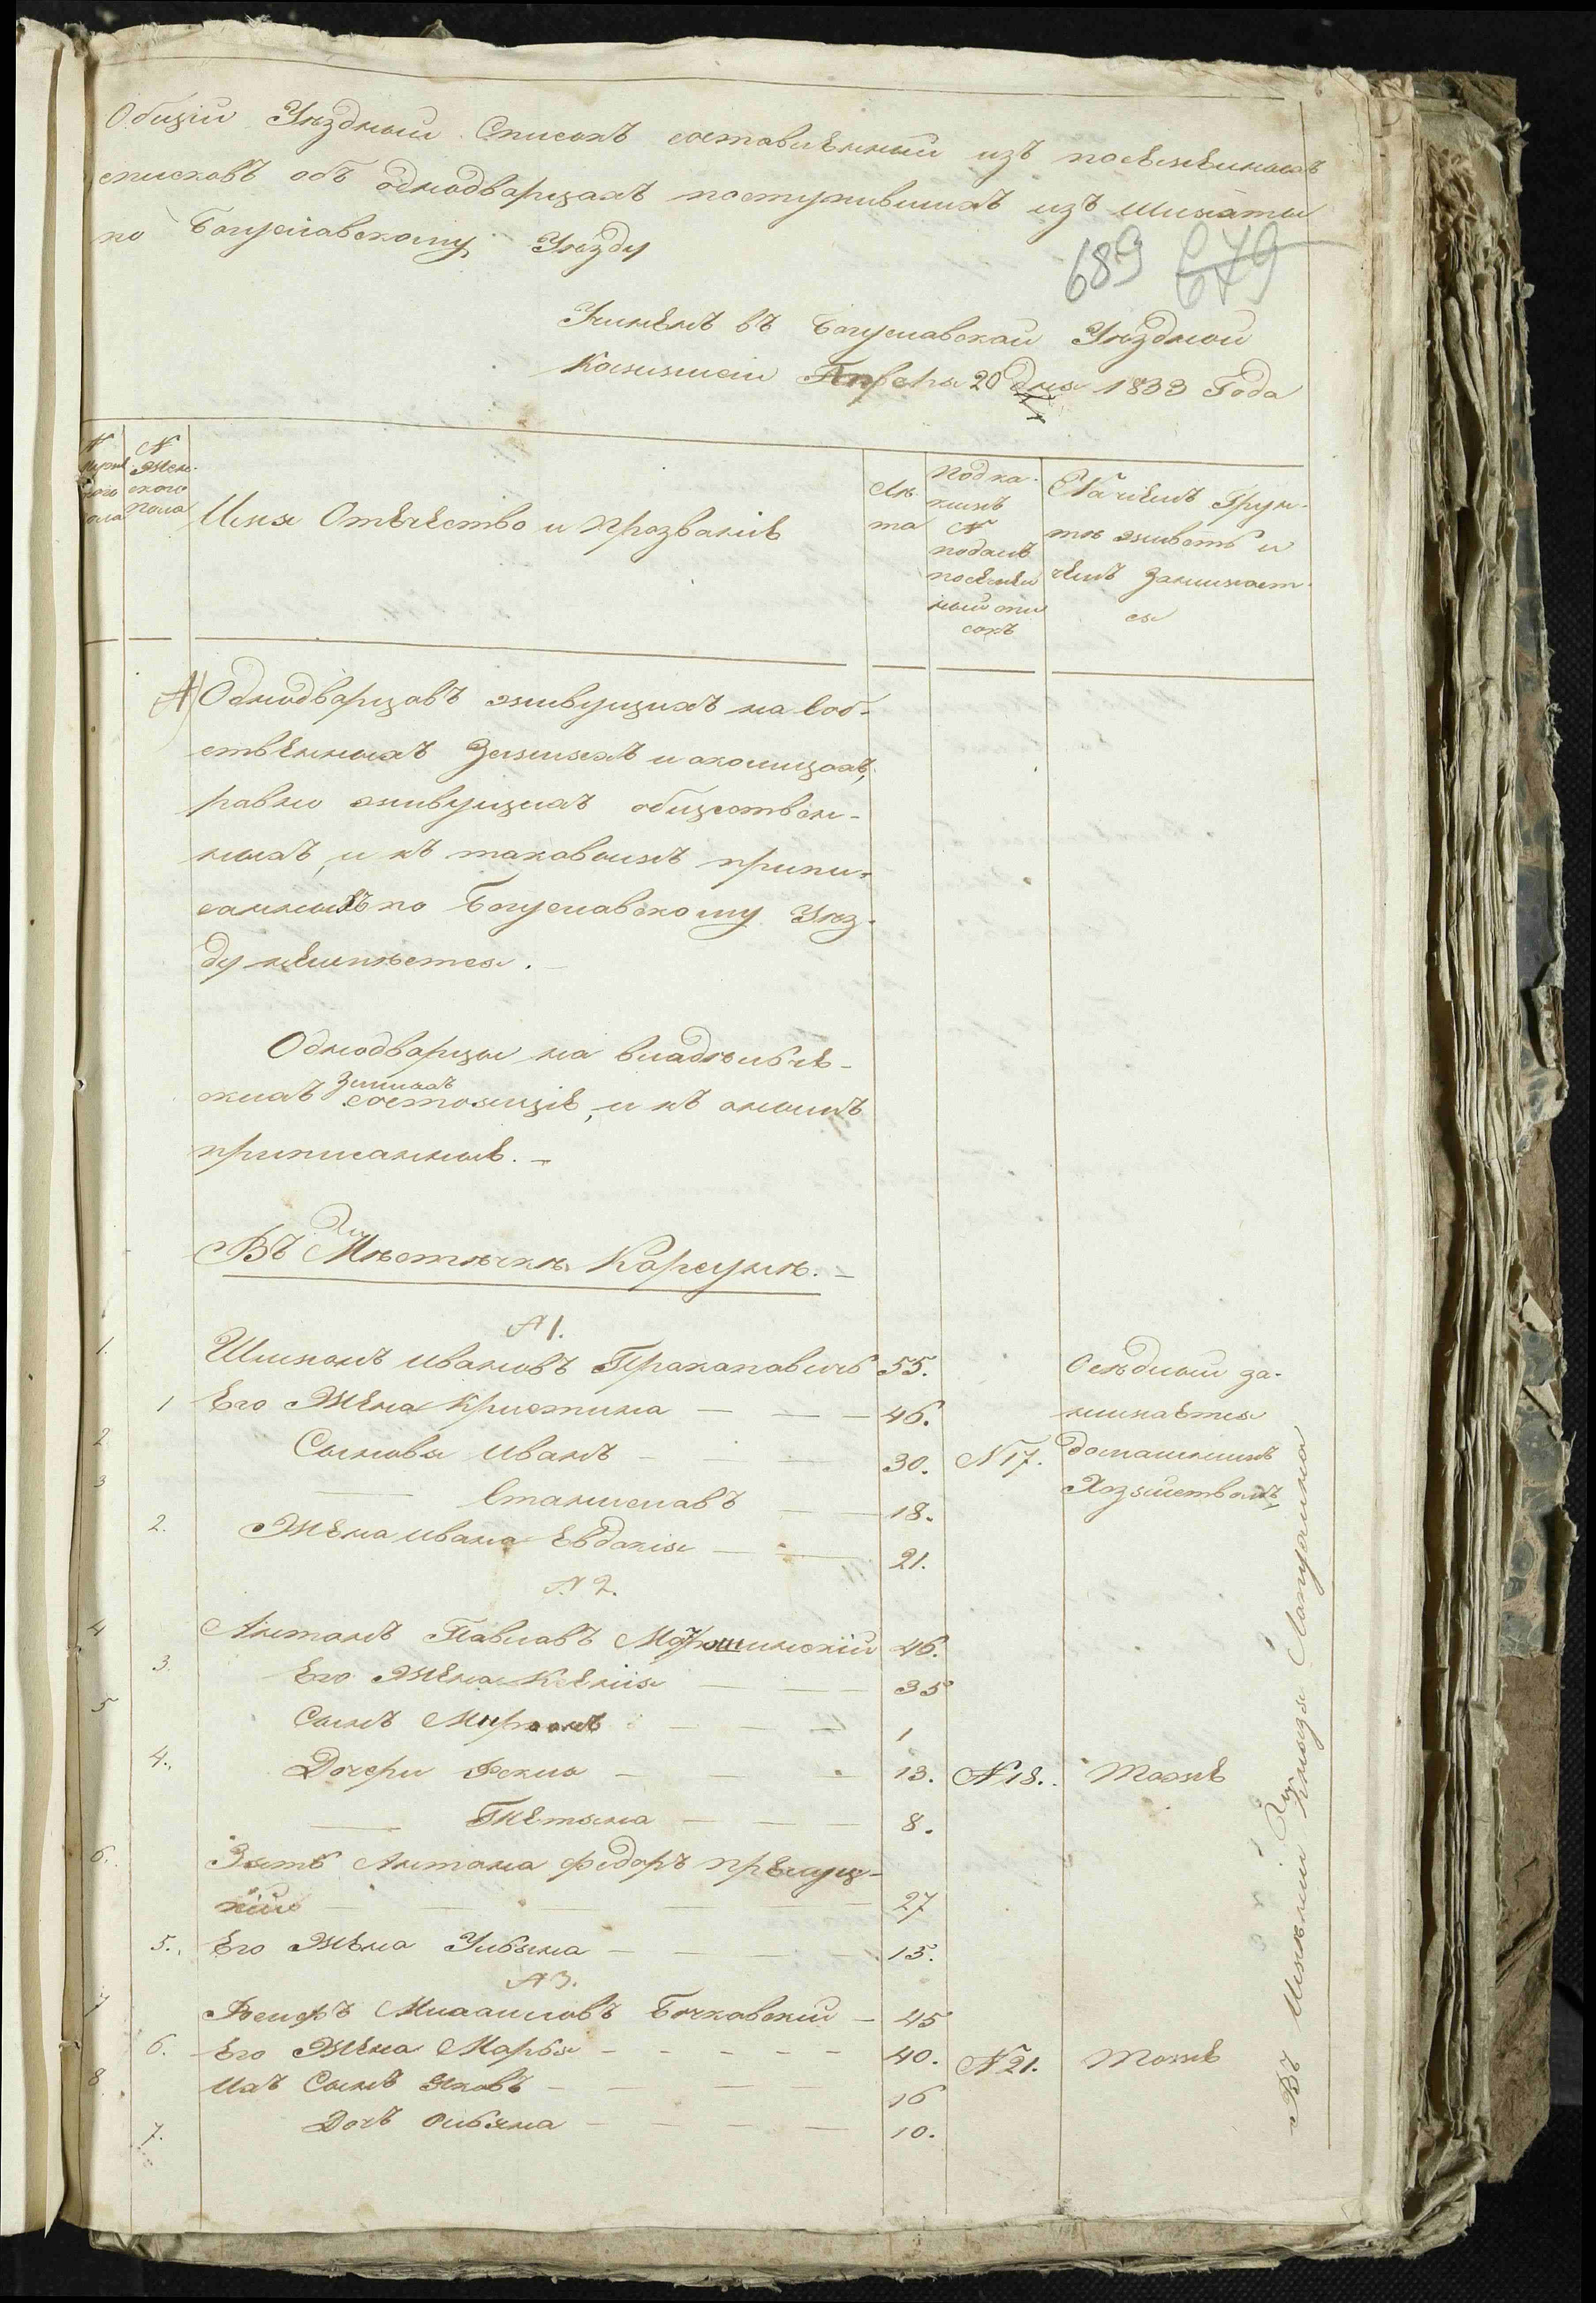 Общій Уѣздный Списокъ составленный изъ поселенныхъ
списковъ объ однодворцахъ поступившихъ изъ Шляхты
по Богуславскому Уѣзду
689 679
Учиненъ въ Богуславской Уѣздной
Коммисіи Апреля 20 дня 1833 Года
N мужескаго пола
N Женскаго пола
Имя Отечество и Прозваніе
Лѣта
Подкакимъ N поданъ поселенный списокъ
На чіемъ Грунтѣ живетъ и чемъ занимается
А) Однодворцовъ живущихъ на Соб-
ственныхъ Земляхъ и околицахъ,
равно живущихъ обществен-
ныхъ, и къ таковымъ припи-
санныхъ по Богуславскому Уѣз-
ду неимѣется.
Однодворцы на владѣльче-
скихъ Земляхъ состоящіе, и къ онымъ
приписанные. —
Въ Мѣстѣчкѣ Корсунѣ. —
N 1.
1. Шимонъ Ивановъ Прокоповичь 55. Осѣдлый за-
1 Его Жена Кристина — — — 46. нимается
2 Сыновья Иванъ — — — 30. N 17. домашнимъ
3 — Станиславъ — 18. Хозяйствомъ,
2. Жена Ивана Евдокія — — 21.
N 2.
4 Антонъ Павловъ 46.
3. Его Жена Ксенія — — — 35
5 Сынъ Миронъ — — — 1
4. Дочери Фекла — — — 13. N 18. Тоже
— Тетяна — — — 8.
6. Зять Антона Федоръ
27
5. Его Жена Ульяна — — — 15.
N 3.
7 Іосифъ Михаиловъ Бочковскій — 45
6. Его Жена Марья — — — — — 40. N 21. Тоже
8 Ихъ Сынъ Яковъ — — — — 16
7. Дочь Ульяна — — — — 10.
Въ Имѣніи Князя Лопухина